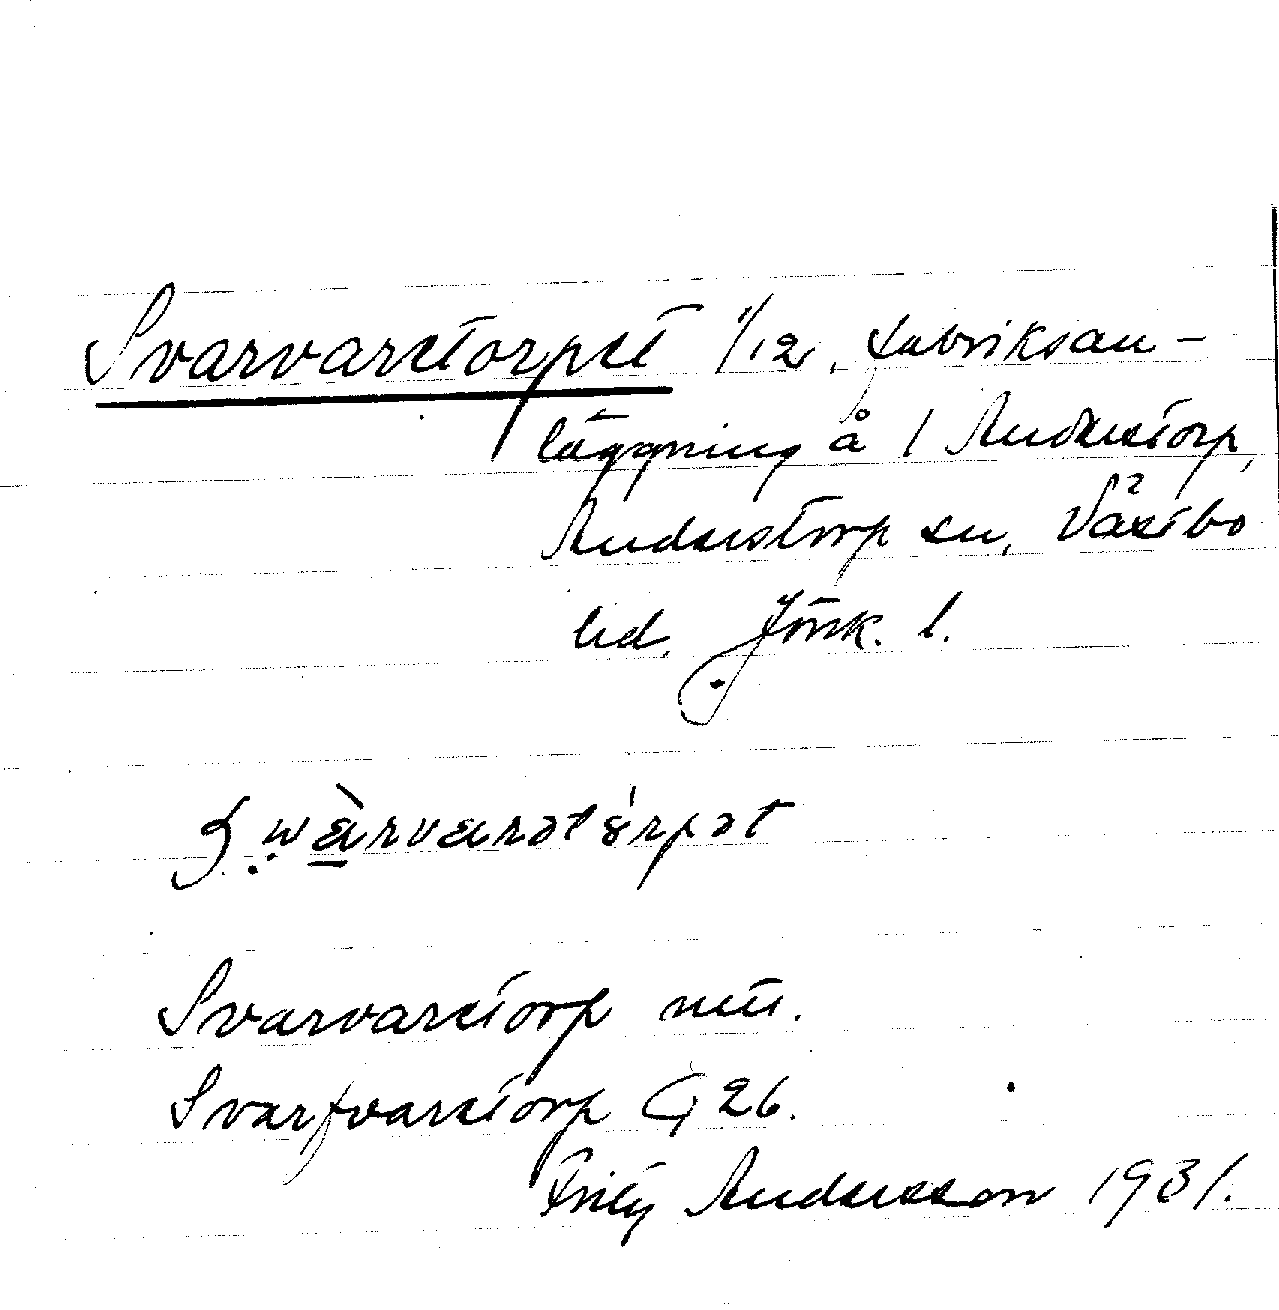 Svarvaretorpet 1/12, fabriksan-
läggning å 1 Anderstorp,
Anderstorp sn, Västbo
hd. Jönk. l.
Svarvaretorp
Svarfvaretorp G 26.
Fritz Andersson 1931.